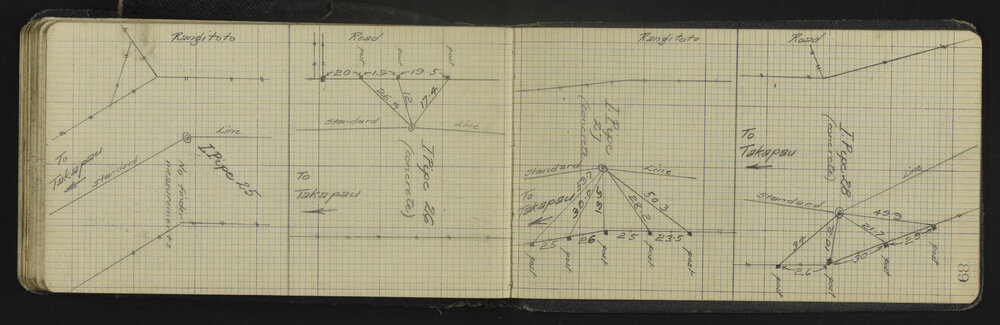 Rangitoto
Line
I. Pipe 25
Standard
To
Takapau
No finder
measurements
Road
post
post
post
20
19
19.5
26.9
12
17.4
Standard
Line
I. Pipe 26
(concrete)
To
Takapau
Rangitoto
I. Pipe
27
(concrete)
Standard
Line
To
Takapau
50.3
28.2
25
26
25
23.5
post
post
post
post
post
Road
To
Takapau
I. Pipe 28
(concrete)
Line
Standard
49.9
21.7
34
20.1
26
30
29
post
post
post
post
89